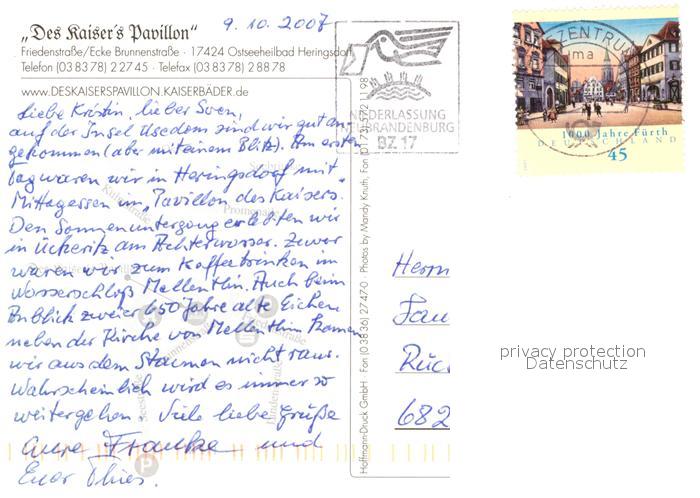 9.10.2007
„Des Kaiser's Pavillon"
Friedenstraße/Ecke Brunnenstraße · 17424 Ostseeheilbad Heringsdorf
Telefon (03 83 78) 2 27 45 · Telefax (03 83 78) 2 88 78
www.DESKAISERSPAVILLON.KAISERBÄDER.de
Liebe Kristin, lieber Sven,
auf der Insel Usedom sind wir gut an-
gekommen (aber mit einem Blitz). Am ersten
Tag waren wir in Heringsdorf mit
Mittagessen im „Pavillon des Kaisers.
Den Sonnenuntergang erlebten wir
in Ückeritz am Achterwasser. Zuvor
waren wir zum Kaffeetrinken im
Wasserschloß Mellenthin. Auch beim
Anblick zweier 650 Jahre alte Eichen
neben der Kirche von Mellenthin kamen
wir aus dem Staunen nicht raus.
Wahrscheinlich wird es immer so
weitergehen. Viele liebe Grüße
Eure Frauke und
Euer Thies.
Hoffmann-Druck GmbH · Fon (0 38 36) 27 47 0 · Photos by Mandy Knuth, Fon
NIEDERLASSUNG
NEUBRANDENBURG
BZ 17
ZENTRUM
1000 Jahre Fürth
DEUTSCHLAND
45
Herrn
Rüc
682
privacy protection
Datenschutz